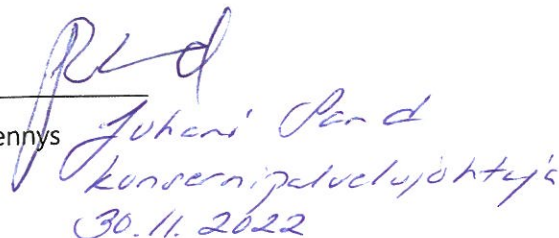 ennys
Juhani Pand
konsernipalvelujohtaja
30.11.2022